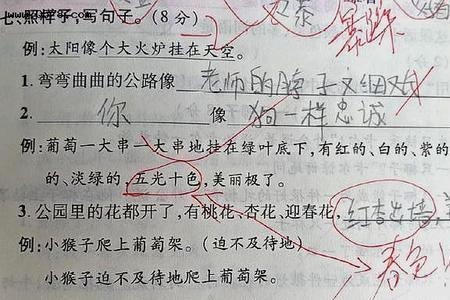 七、照样子，写句子。(8分)
例:太阳像个大火炉挂在天空。
1. 弯弯曲曲的公路像 老师的脖子又细又
2. 你 像 狗一样忠诚
例:葡萄一大串一大串地挂在绿叶底下,有红的、白的、紫的
的、淡绿的,五光十色,美丽极了。
3. 公园里的花都开了,有桃花、杏花、迎春花,红杏出墙,
例:小猴子爬上葡萄架。(迫不及待地)
春色
小猴子迫不及待地爬上葡萄架。